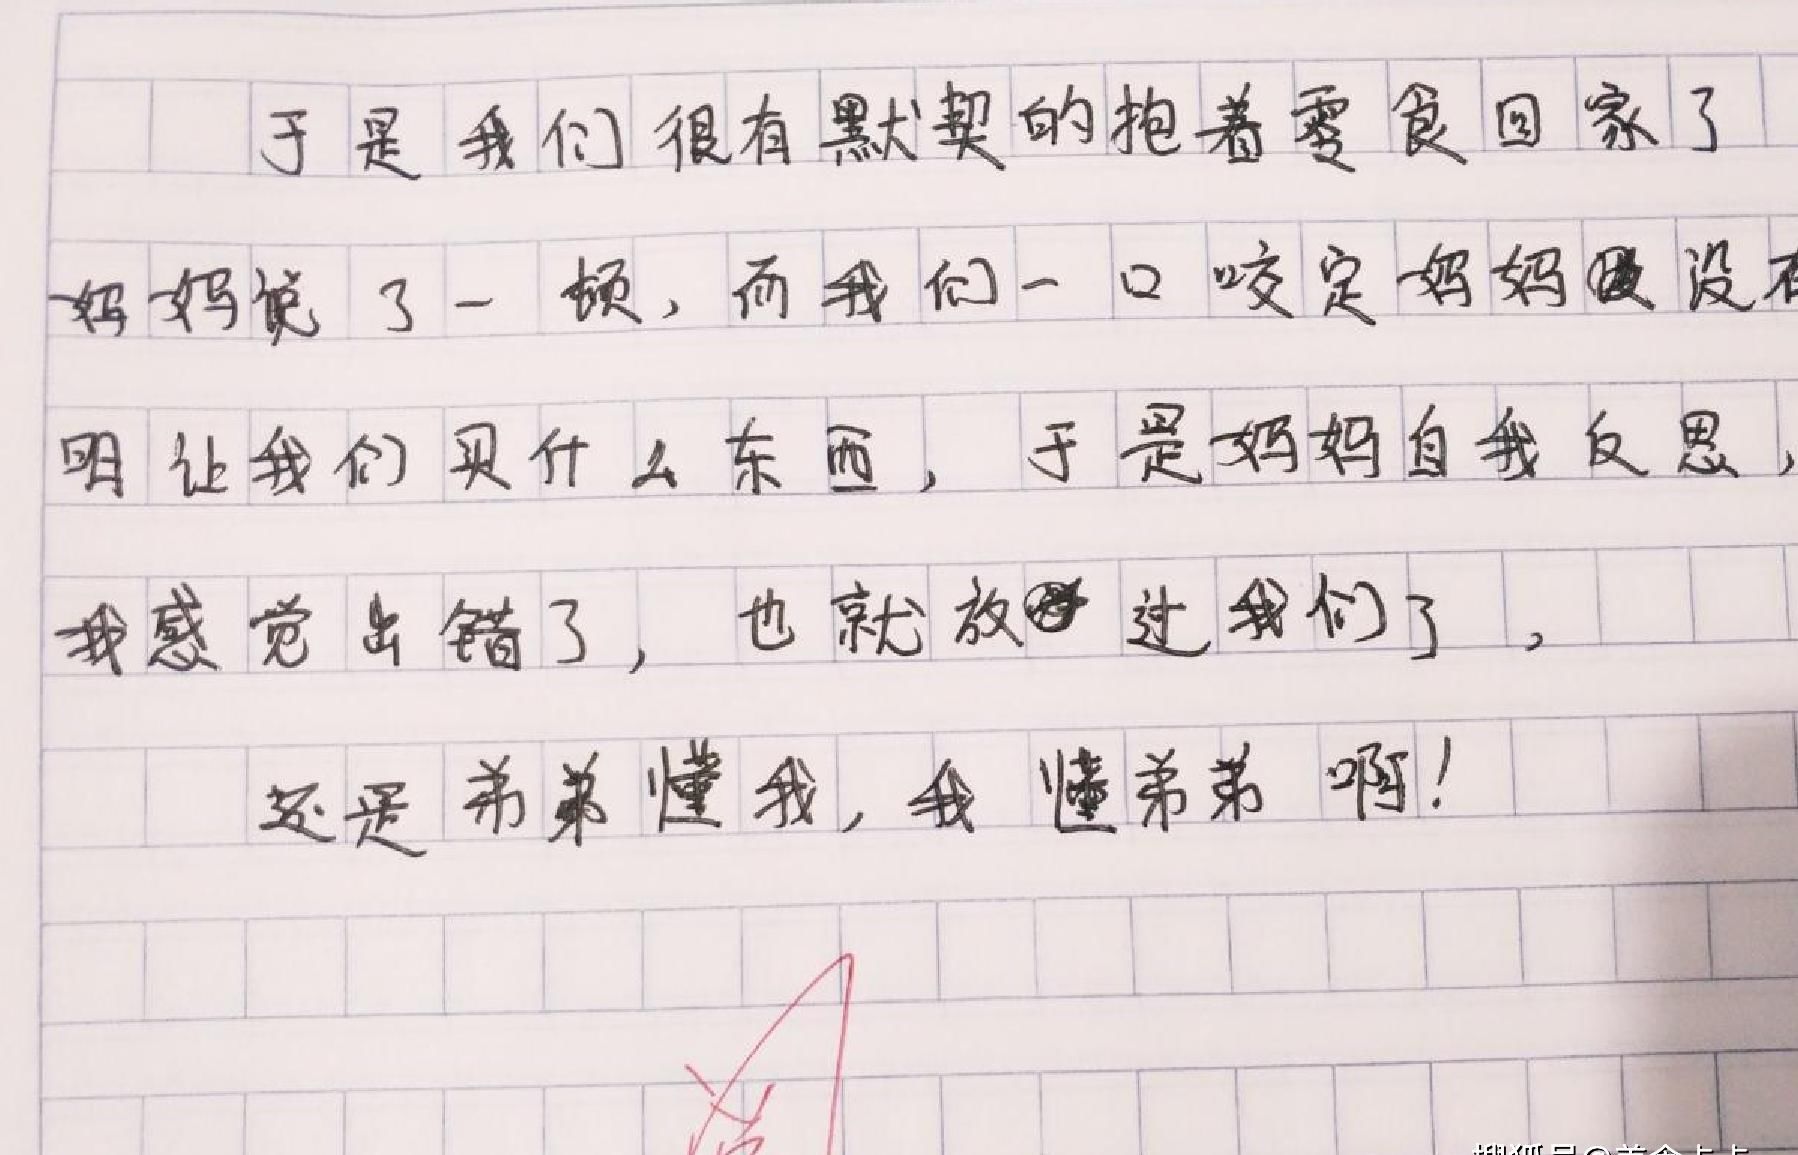 于是我们很有默契的抱着零食回家了
妈妈说了一顿，而我们一口咬定妈妈没有
明让我们买什么东西，于是妈妈自我反思，
我感觉出错了，也就放过我们了，
还是弟弟懂我，我懂弟弟啊！